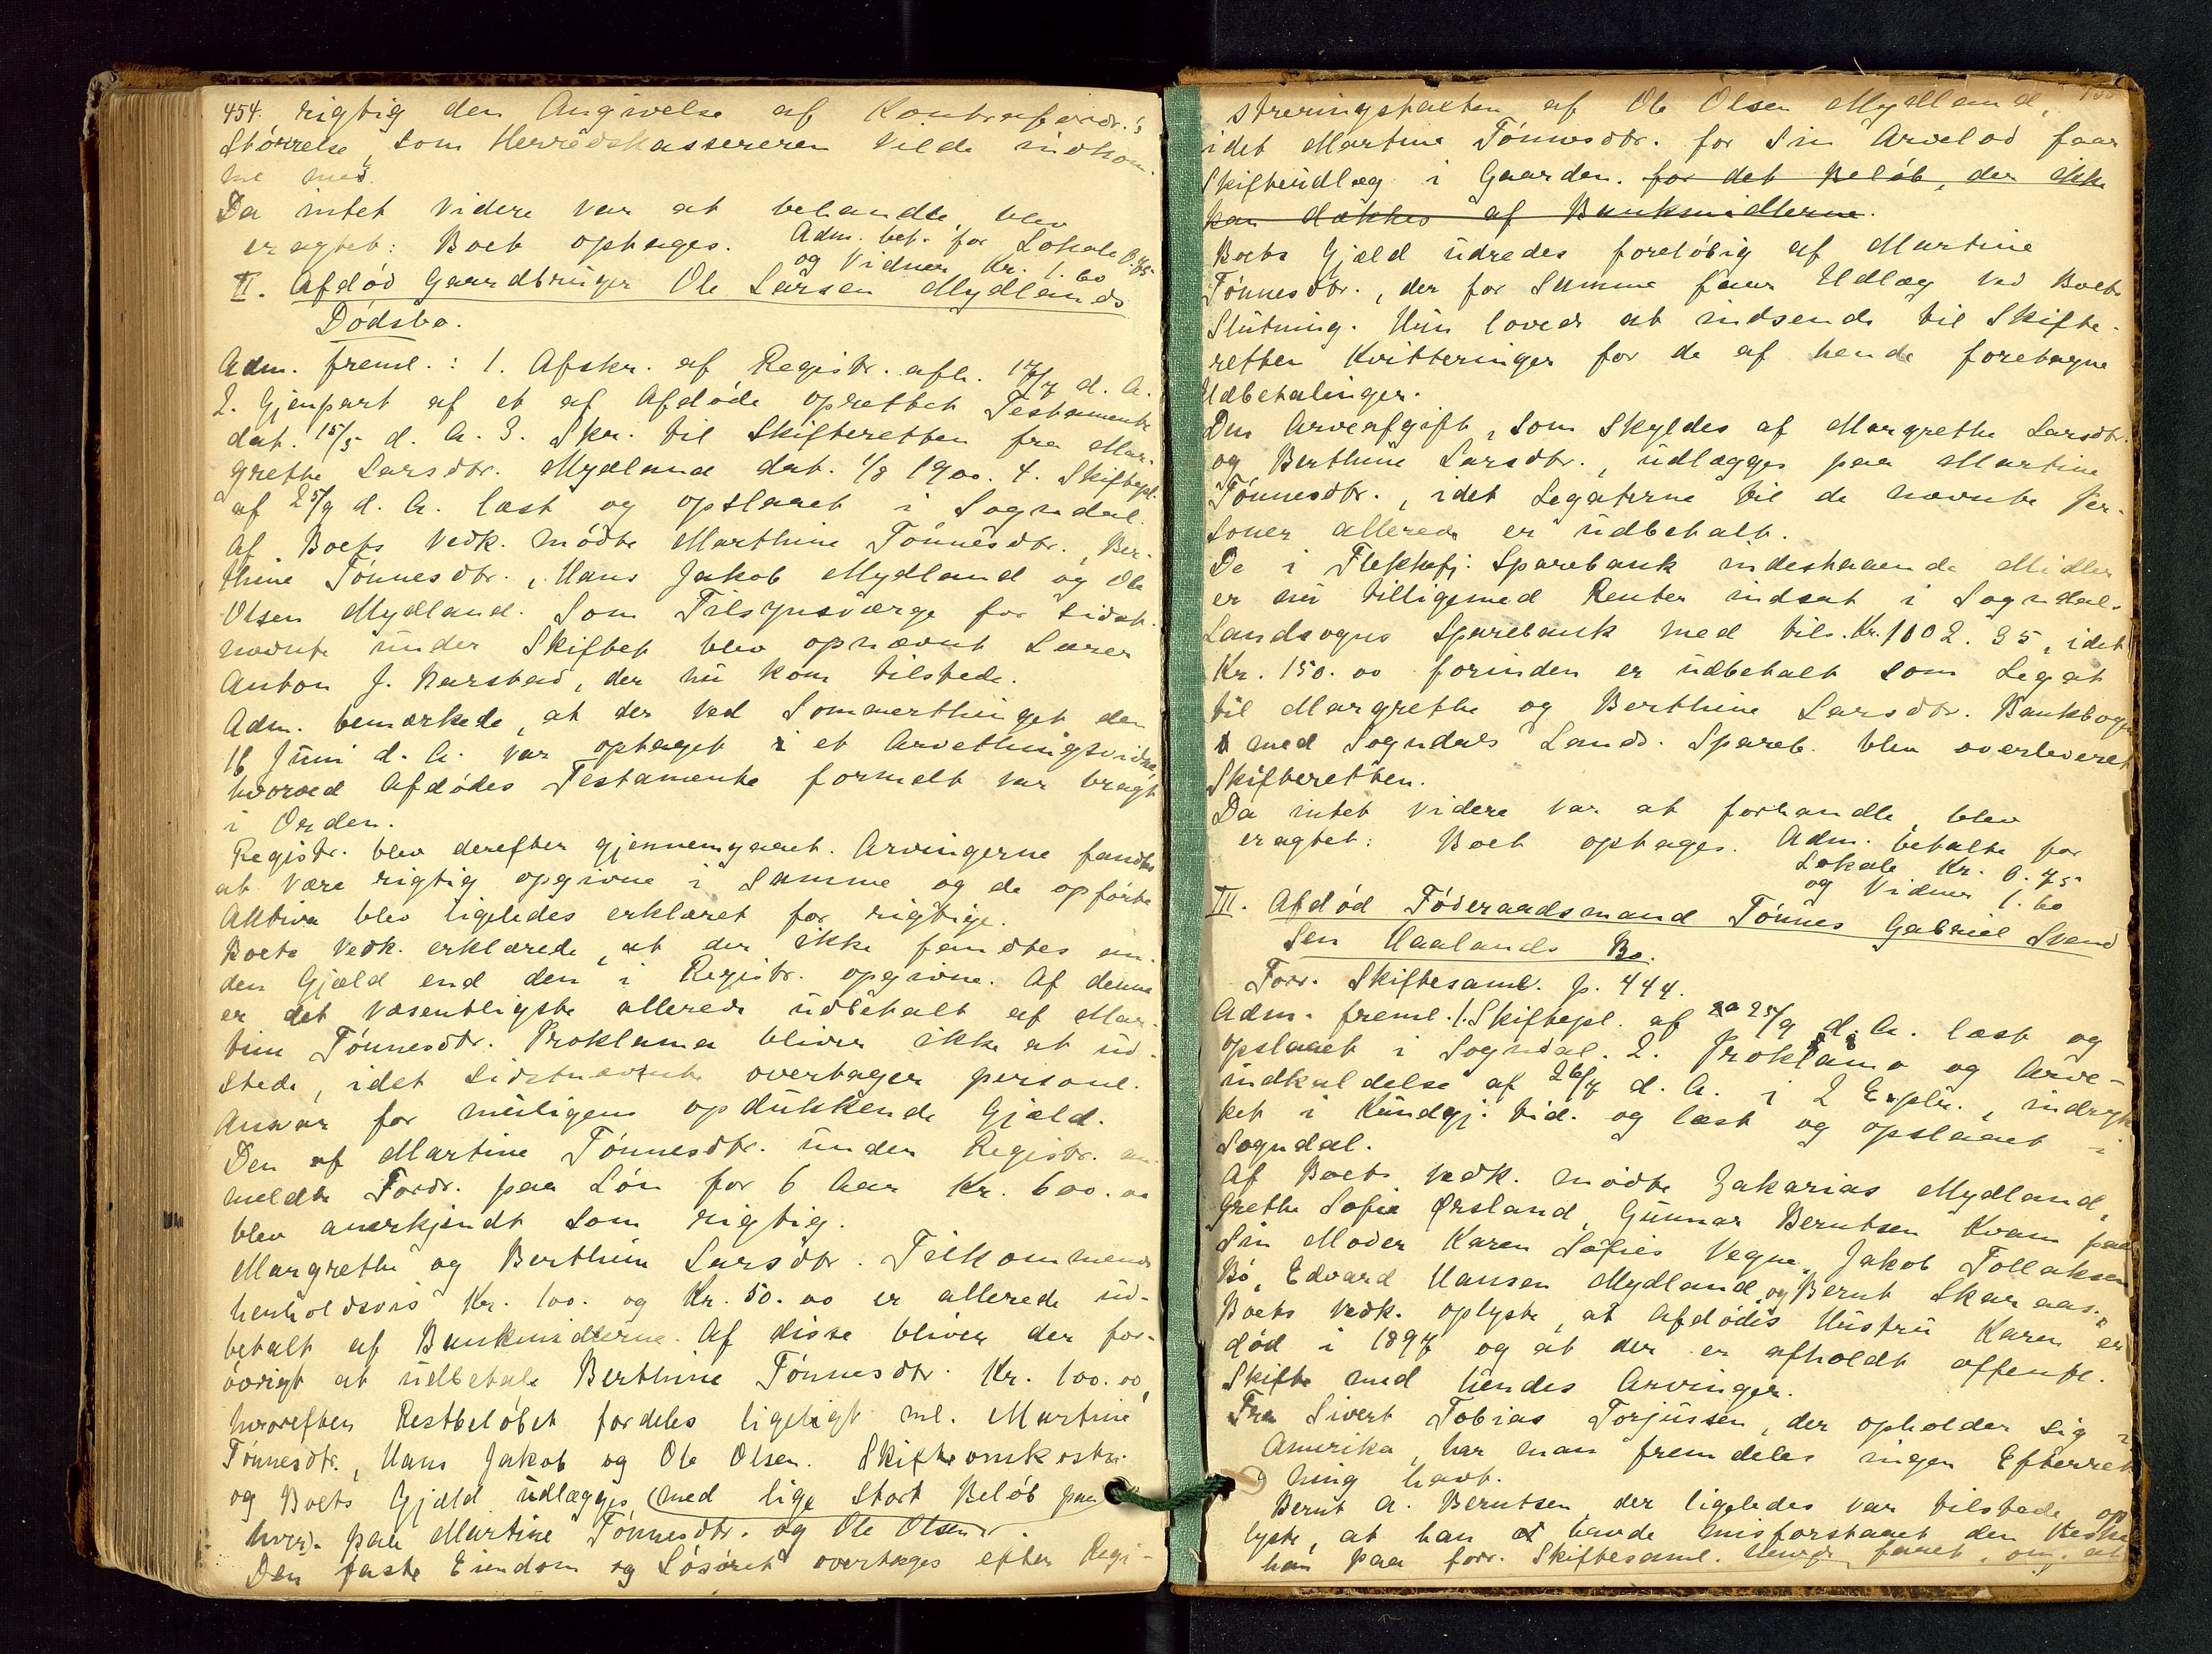 454. rigtig den Angivelse af Kontrafordr.'s
Störrelse, som Herredskassereren vilde indkom-
me med.
Da intet videre var at behandle, blev
eragtet: Boet optages. Adm. bet. for Lokale 0.75
og Vidner Kr. 1.60
II. Afdöd Gaardbruger Ole Larsen Mydlands
Dödsbo.
Adm. freml.: 1. Afskr. af Registr. afh. 17/7 d. A.
2. Gjenpart af et af Afdöde oprettet Testamente
dat. 15/5 d. A. 3. Skr. til Skifteretten fra Mar-
grethe Larsdtr. Mydland dat. 1/8 1900. 4. Skiftepl.
af 25/9 d. A. læst og opslaaet i Sogndal.
Af Boets Vedk. mödte Marthine Tönnesdtr., Ber-
thine Tönnesdtr., Hans Jakob Mydland og Ole
Olsen Mydland. Som Tilsynsværge for sidst-
nævnte under Skiftet blev opnævnt Lærer
Anton J. Barstad, der nu kom tilstede.
Adm. bemærkede, at der ved Sommerthinget den
16 Juni d. A. var optaget et Arvethingsvidne,
hvorved Afdödes Testamente formelt var bragt
i Orden.
Registr. blev derefter gjennemgaaet. Arvingerne fandtes
at være rigtig opgivne i Samme og de opförte
Aktiva blev ligeledes erklæret for rigtige.
Boets Vedk. erklærede, at der ikke fandtes an-
den Gjæld end den i Registr. opgivne. Af denne
er det væsentligste allerede udbetalt af Mar-
tine Tönnesdtr. Proklama bliver ikke at ud-
stede, idet sidstnævnte overtager personl.
Ansvar for muligens opdukkende Gjæld.
Den af Martine Tönnesdtr. under Registr. an-
meldte Fordr. paa Lön for 6 Aar Kr. 600.00
blev anerkjendt som rigtig.
Margrethe og Berthine Larsdtr. Tilkommende
henholdsvis Kr. 100. og Kr. 50.00 er allerede ud-
betalt af Bankmidlerne. Af disse bliver der for-
övrigt at udbetale Berthine Tönnesdtr. Kr. 100.00,
hvorefter Restbelöbet fordeles ligeligt ml. Martine
Tönnesdtr., Hans Jakob og Ole Olsen. Skifteomkostn.
og Boets Gjæld udlægges (med lige stort Belöb paa
hver) paa Martine Tönnesdtr. og Ole Olsen.
Den faste Eiendom og Lösöret overtages efter Regi-
streringstaxten af Ole Olsen Mydland,
idet Martine Tönnesdtr. for Sin Arvelod faar
Skifteudlæg i Gaarden. for det Belöb, der ikke
kan dækkes af Bankmidlerne.
Boets Gjæld udredes forelöbig af Martine
Tönnesdtr., der for Samme faar Udlæg ved Boets
Slutning. Hun loved at indsende til Skifte-
retten Kvitteringer for de af hende foretagne
Udbetalinger.
Den Arveafgift, som Skyldes af Margrethe Larsdtr.
og Berthine Larsdtr., udlægges paa Martine
Tönnesdtr., idet Legaterne til de nævnte Per-
soner allerede er udbetalt.
De i Flekkefj. Sparebank indestaaende Midler
er nu tilligemed Renter indsat i Sogndal-
Landsogns Sparebank med tils. Kr. 1002.35, idet
Kr. 150.00 forinden er udbetalt som Legat
til Margrethe og Berthine Larsdtr. Bankbogen
med Sogndals Lands. Spareb. blev overleveret
Skifteretten.
Da intet videre var at forhandle, blev
eragtet: Boet optages. Adm. betalte for
Lokale Kr. 0.75
og Vidner 1.60
III. Afdöd Föderaadsmand Tönnes Gabriel Svend
sen Haalands Bo.
Forr. Skiftesaml. p. 444.
Adm. freml. 1. Skiftepl. af 25/9 d. A. læst og
opslaaet i Sogndal. 2. Proklama og Arve-
indkaldelse af 26/7 d. A. i 2 Explr., indryk-
ket i Kundgj. tid. og læst og opslaaet i
Sogndal.
Af Boets Vedk. mödte Zakarias Mydland,
Grethe Sofie Ørsland, Gunnar Berntsen Kvam paa
Sin Moder Karen Sofies Vegne, Jakob Tollaksen
Bö, Edvard Hansen Mydland og Bernt Skaraas.
Boets Vedk. oplyste, at Afdödes Hustru Karen er
död i 1897 og at der er afholdt offentl.
Skifte med hendes Arvinger.
Fra Sivert Tobias Torjussen, der opholder sig i
Amerika, har man fremdeles ingen Efterret-
ning havt.
Bernt A. Berntsen der ligeledes var tilstede op
lyste, at han havde misforstaaet den Besked
han paa forr. Skiftesaml. havde faaet, om, at